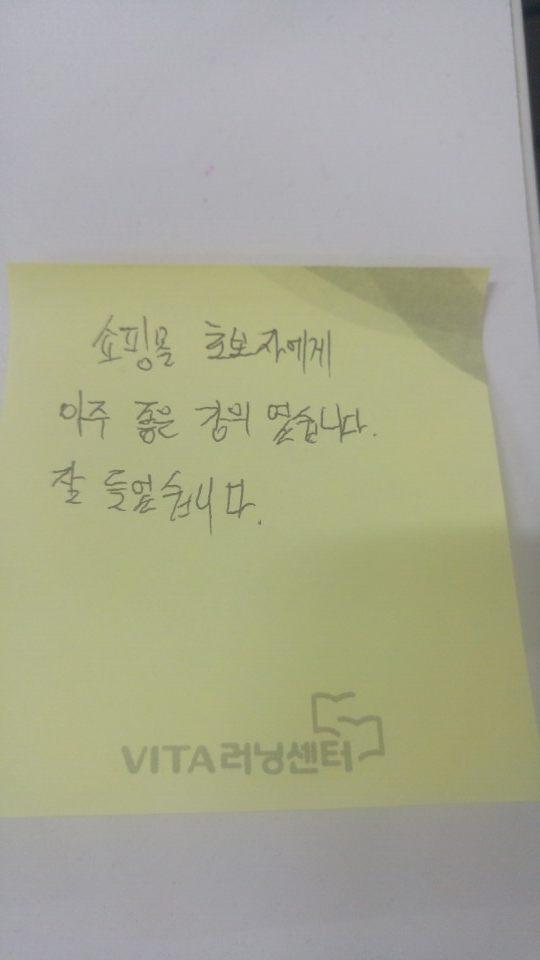 쇼핑몰 초보자에게
아주 좋은 강의 였습니다.
잘 들었습니다.
VITA러닝센터